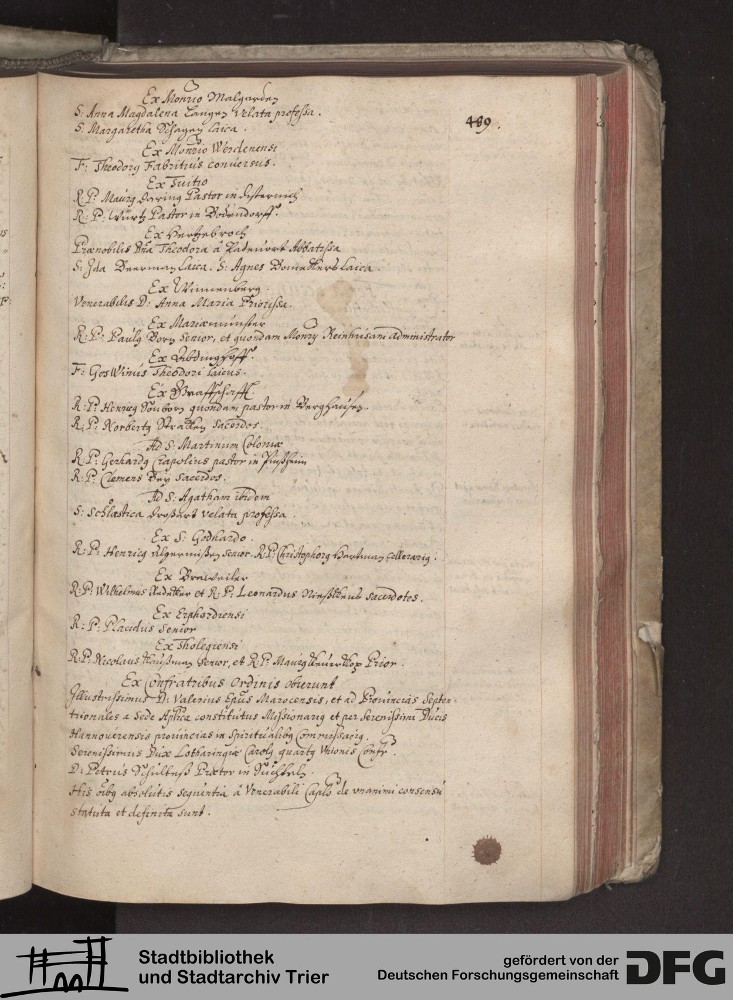 Ex Monrio Malgarden
S: Anna Magdalena Langen velata professa.
S. Margaretha Schagen laica.
489.
Ex Monrio Werdenensi
F: Theodorg Fabritius conuersus.
Ex Tuitio
R: P: Maurg Pastor in
R: P: Würtz Pastor in Bodendorff.
Ex Hertzebroch
Prænobilis Dna Theodora á Abbatissa
S: Ida Beerman laica. S: Agnes laica
Ex Vinnenberg.
Venerabilis D: Anna Maria Priorissa.
Ex Mariæmünster
R: P: Paulg Dorn Senior, et quondam Monry Reinhusani administrator
Ex Abdinghoff.
F: Goswinus Theodori laicus.
Ex Graffschafft
R: P: Henricg quondam pastor in Berghausen.
R: P: Norbertg sacerdos.
Ad S: Martinum Coloniæ
R: P: Gerhardg Crapolius pastor in
R: P: Clemens Sacerdos.
Ad S: Agatham ibidem
S: Scholastica velata professa.
Ex S: Godhardo.
R: P: Henricg Algermissen senior. R: P: Christophorg Hartman cellerarig.
Ex Braweiler
R: P: Wilhelmus et R: P: Leonardus sacerdotes.
Ex Erphordiensi
R: P: Placidus Senior
Ex Tholegiensi
R: P: Nicolaus Haußman Senior, et R: P: Maurg Prior.
Ex Confratribus Ordinis obierunt
Illustrissimus D: Valerius Epus Marocensis, et ad Prouincias Septen-
trionales a Sede Aplica constitutus Missionarig et per Serenissimi Ducis
Hannouerensis prouincias in spiritualibg Commissarig.
Serenissimus Dux Lotharingiæ Carolg quartg Vnionis Confr.
D: Petrus Schultess Prætor in Süchteln.
His oibg absolutis sequentia á Venerabili Caplo de vnanimi consensu
statuta et definita sunt.
Stadtbibliothek
und Stadtarchiv Trier
gefördert von der
Deutschen Forschungsgemeinschaft
DFG